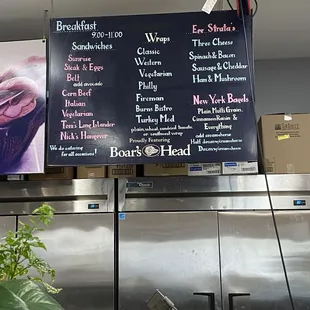 Breakfast
9:00-11:00
Sandwiches
Sunrise
Steak & Eggs
Belt
add avocado
Corn Beef
Italian
Vegetarian
Tom's Islander
Nick's Hangover
We do catering
for all occasions
Wraps
Classic
Western
Vegetarian
Philly
Fireman
Burns Bistro
Turkey Med
plain, wheat, sundried tomato
or southwest wrap
Proudly Featuring
Boar's Head
Egg Strata's
Three Cheese
Spinach & Bacon
Sausage & Cheddar
Ham & Mushroom
New York Bagels
Plain Multi Grain
Cinnamon Raisin &
Everything
add creamcheese
Half dozen/creamcheese
Dozen/creamcheese